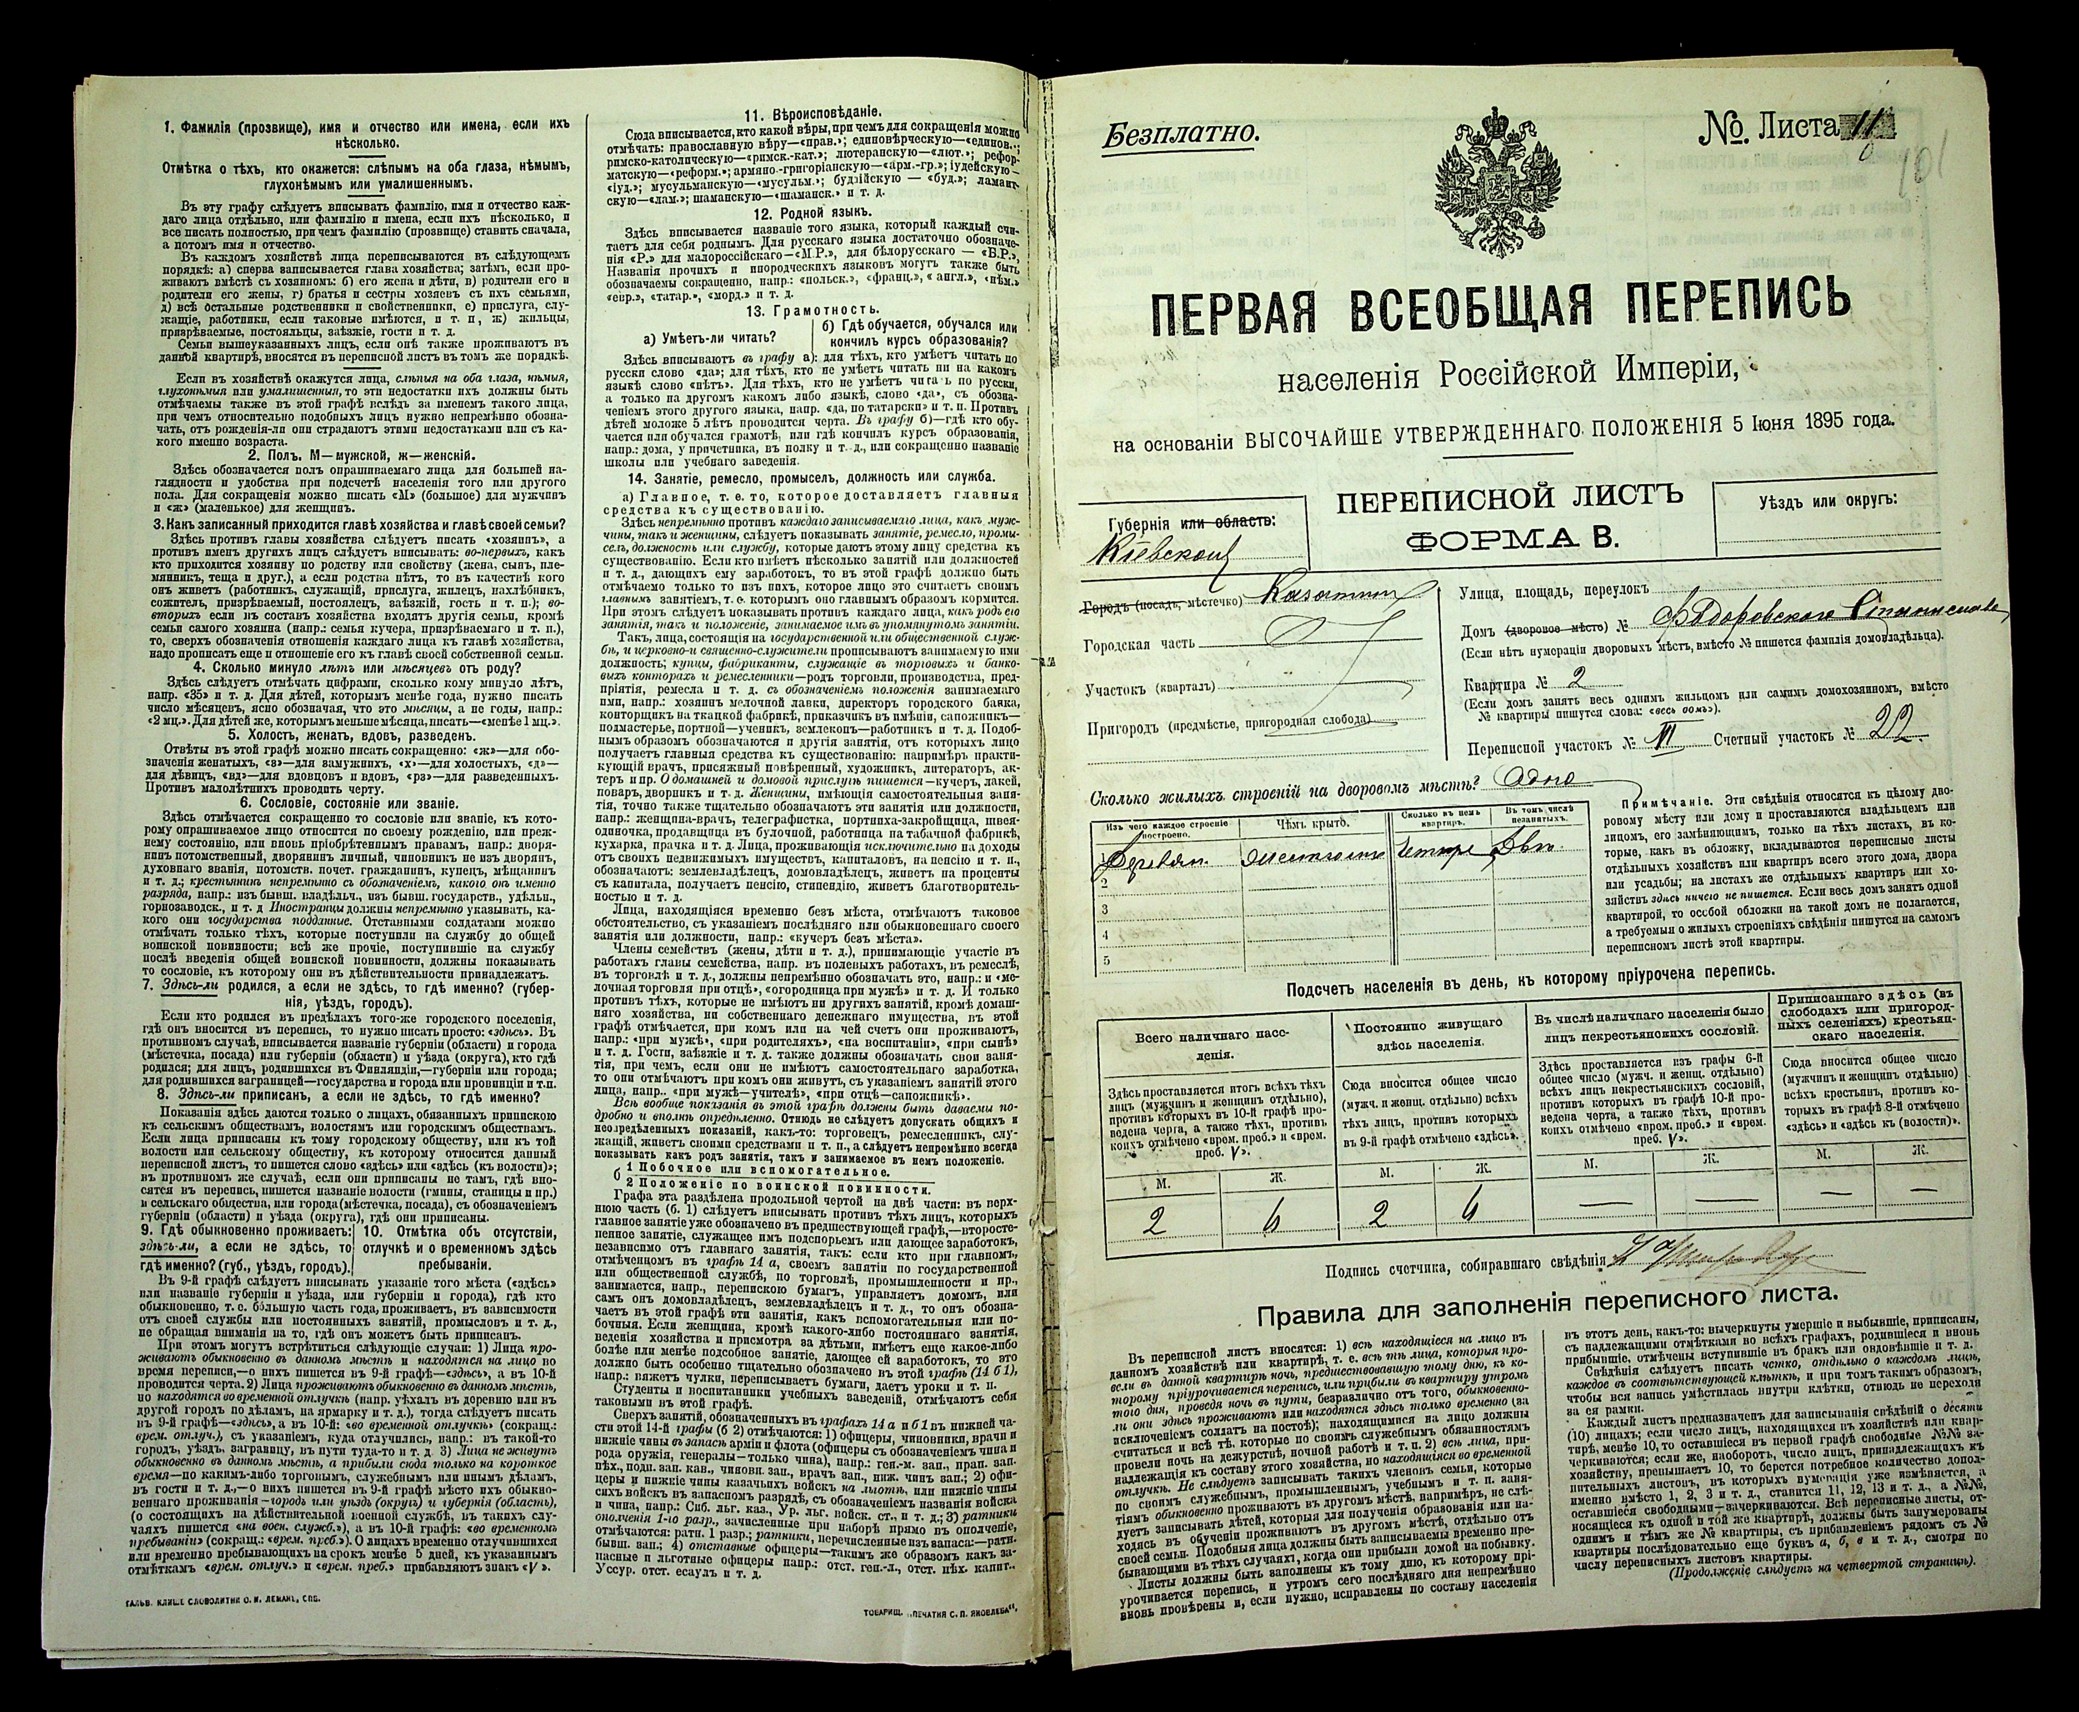 1. Фамилія (прозвище), имя и отчество или имена, если ихъ
нѣсколько.
Отмѣтка о тѣхъ, кто окажется: слѣпымъ на оба глаза, нѣмымъ,
глухонѣмымъ или умалишеннымъ.
Въ эту графу слѣдуетъ вписывать фамилію, имя и отчество каж-
даго лица отдѣльно, или фамилію и имена, если ихъ нѣсколько, и
все писать полностью, при чемъ фамилію (прозвище) ставить сначала,
а потомъ имя и отчество.
Въ каждомъ хозяйствѣ лица переписываются въ слѣдующемъ
порядкѣ: а) сперва записывается глава хозяйства; затѣмъ, если про-
живаютъ вмѣстѣ съ хозяиномъ: б) его жена и дѣти, в) родители его и
родители его жены, г) братья и сестры хозяевъ съ ихъ семьями,
д) всѣ остальные родственники и свойственники, е) прислуга, слу-
жащіе, работники, если таковые имѣются, и т. п, ж) жильцы,
призрѣваемые, постояльцы, заѣзжіе, гости и т. д.
Семьи вышеуказанныхъ лицъ, если онѣ также проживаютъ въ
данной квартирѣ, вносятся въ переписной листъ въ томъ же порядкѣ.
Если въ хозяйствѣ окажутся лица, слѣпыя на оба глаза, нѣмыя,
глухонѣмыя или умалишенныя, то эти недостатки ихъ должны быть
отмѣчаемы также въ этой графѣ вслѣдъ за именемъ такого лица,
при чемъ относительно подобныхъ лицъ нужно непремѣнно обозна-
чать, отъ рожденія-ли они страдаютъ этими недостатками или съ ка-
кого именно возраста.
2. Полъ. М—мужской, ж—женскій.
Здѣсь обозначается полъ опрашиваемаго лица для большей на-
глядности и удобства при подсчетѣ населенія того или другого
пола. Для сокращенія можно писать «М» (большое) для мужчинъ
и «ж» (маленькое) для женщинъ.
3. Какъ записанный приходится главѣ хозяйства и главѣ своей семьи?
Здѣсь противъ главы хозяйства слѣдуетъ писать «хозяинъ», а
противъ именъ другихъ лицъ слѣдуетъ вписывать: во-первыхъ, какъ
кто приходится хозяину по родству или свойству (жена, сынъ, пле-
мянникъ, теща и друг.), а если родства нѣтъ, то въ качествѣ кого
онъ живетъ (работникъ, служащій, прислуга, жилецъ, нахлѣбникъ,
сожитель, призрѣваемый, постоялецъ, заѣзжій, гость и т. п.); во-
вторыхъ если въ составъ хозяйства входятъ другія семьи, кромѣ
семьи самого хозяина (напр: семья кучера, призрѣваемаго и т. п.),
то, сверхъ обозначенія отношенія каждаго лица къ главѣ хозяйства,
надо прописать еще и отношеніе его къ главѣ своей собственной семьи.
4. Сколько минуло лѣтъ или мѣсяцевъ отъ роду?
Здѣсь слѣдуетъ отмѣчать цифрами, сколько кому минуло лѣтъ,
напр. «35» и т. д. Для дѣтей, которымъ менѣе года, нужно писать
число мѣсяцевъ, ясно обозначая, что это мѣсяцы, а не годы, напр.:
«2 мц.». Для дѣтей же, которымъ меньше мѣсяца, писать—«менѣе 1 мц.».
5. Холостъ, женатъ, вдовъ, разведенъ.
Отвѣты въ этой графѣ можно писать сокращенно: «ж»—для обо-
значенія женатыхъ, «з»—для замужнихъ, «х»—для холостыхъ, «д»—
для дѣвицъ, «вд»—для вдовцовъ и вдовъ, «рз»—для разведенныхъ.
Противъ малолѣтнихъ проводить черту.
6. Сословіе, состояніе или званіе.
Здѣсь отмѣчается сокращенно то сословіе или званіе, къ кото-
рому опрашиваемое лицо относится по своему рожденію, или преж-
нему состоянію, или вновь пріобрѣтеннымъ правамъ, напр.: дворя-
нинъ потомственный, дворянинъ личный, чиновникъ не изъ дворянъ,
духовнаго званія, потомств. почет. гражданинъ, купецъ, мѣщанинъ
и т. д.; крестьянинъ непремѣнно съ обозначеніемъ, какого онъ именно
разряда, напр.: изъ бывш. владѣльч., изъ бывш. государств., удѣльн.,
горнозаводск., и т. д Иностранцы должны непремѣнно указывать, ка-
кого они государства подданные. Отставными солдатами можно
отмѣчать только тѣхъ, которые поступили на службу до общей
воинской повинности; всѣ же прочіе, поступившіе на службу
послѣ введенія общей воинской повинности, должны показывать
то сословіе, къ которому они въ дѣйствительности принадлежатъ.
7. Здѣсь-ли родился, а если не здѣсь, то гдѣ именно? (губер-
нія, уѣздъ, городъ).
Если кто родился въ предѣлахъ того-же городского поселенія,
гдѣ онъ вносится въ перепись, то нужно писать просто: «здѣсь». Въ
противномъ случаѣ, вписывается названіе губерніи (области) и города
(мѣстечка, посада) или губерніи (области) и уѣзда (округа), кто гдѣ
родился; для лицъ, родившихся въ Финляндіи,—губерніи или города;
для родившихся заграницей—государства и города или провинціи и т.п.
8. Здѣсь-ли приписанъ, а если не здѣсь, то гдѣ именно?
Показанія здѣсь даются только о лицахъ, обязанныхъ припискою
къ сельскимъ обществамъ, волостямъ или городскимъ обществамъ.
Если лица приписаны къ тому городскому обществу, или къ той
волости или сельскому обществу, къ которому относится данный
переписной листъ, то пишется слово «здѣсь» или «здѣсь (къ волости)»;
въ противномъ же случаѣ, если они приписаны не тамъ, гдѣ вно-
сятся въ перепись, пишется названіе волости (гмины, станицы и пр.)
и сельскаго общества, или города (мѣстечка, посада), съ обозначеніемъ
губерніи (области) и уѣзда (округа), гдѣ они приписаны.
9. Гдѣ обыкновенно проживаетъ:
здѣсь-ли, а если не здѣсь, то
гдѣ именно? (губ., уѣздъ, городъ).
10. Отмѣтка объ отсутствіи,
отлучкѣ и о временномъ здѣсь
пребываніи.
Въ 9-й графѣ слѣдуетъ вписывать указаніе того мѣста («здѣсь»
или названіе губерніи и уѣзда, или губерніи и города), гдѣ кто
обыкновенно, т. е. большую часть года, проживаетъ, въ зависимости
отъ своей службы или постоянныхъ занятій, промысловъ и т. д.,
не обращая вниманія на то, гдѣ онъ можетъ быть приписанъ.
При этомъ могутъ встрѣтиться слѣдующіе случаи: 1) Лица про-
живаютъ обыкновенно въ данномъ мѣстѣ и находятся на лицо во
время переписи,—о нихъ пишется въ 9-й графѣ—«здѣсь», а въ 10-й
проводится черта. 2) Лица проживаютъ обыкновенно въ данномъ мѣстѣ,
но находятся во временной отлучкѣ (напр. уѣхалъ въ деревню или въ
другой городъ по дѣламъ, на ярмарку и т. д.), тогда слѣдуетъ писать
въ 9-й графѣ—«здѣсь», а въ 10-й: «во временной отлучкѣ» (сокращ.:
врем. отлуч.), съ указаніемъ, куда отлучились, напр.: въ такой-то
городъ, уѣздъ, заграницу, въ пути туда-то и т. д. 3) Лица не живутъ
обыкновенно въ данномъ мѣстѣ, а прибыли сюда только на короткое
время—по какимъ-либо торговымъ, служебнымъ или инымъ дѣламъ,
въ гости и т. д.,—о нихъ пишется въ 9-й графѣ мѣсто ихъ обыкно-
веннаго проживанія—городъ или уѣздъ (округъ) и губернія (область),
(о состоящихъ на дѣйствительной военной службѣ, въ такихъ слу-
чаяхъ пишется «на воен. службѣ.»), а въ 10-й графѣ: «во временномъ
пребываніи» (сокращ.: «врем. преб.»). О лицахъ временно отлучившихся
или временно пребывающихъ на срокъ менѣе 5 дней, къ указаннымъ
отмѣткамъ «врем. отлуч.» и «врем. преб.» прибавляютъ знакъ «V».
ГАЛЬВ. КЛИШЕ СЛОВОЛИТНИ О. И. ЛЕМАНЪ, СПБ.
11. Вѣроисповѣданіе.
Сюда вписывается, кто какой вѣры, при чемъ для сокращенія можно
отмѣчать: православную вѣру—«прав.»; единовѣрческую—«единов.»;
римско-католическую—«римск.-кат.»; лютеранскую—«лют.»; рефор-
матскую—«реформ.»; армяно-григоріанскую—«арм.-гр.»; іудейскую—
«іуд.»; мусульманскую—«мусульм.»; буддійскую — «буд.»; ламаит-
скую—«лам.»; шаманскую—«шаманск.» и т. д.
12. Родной языкъ.
Здѣсь вписывается названіе того языка, который каждый счи-
таетъ для себя роднымъ. Для русскаго языка достаточно обозначе-
нія «Р.» для малороссійскаго—«М.Р.», для бѣлорусскаго — «Б.Р.»,
Названія прочихъ и инородческихъ языковъ могутъ также быть
обозначаемы сокращенно, напр.: «польск.», «франц.», «англ.», «нѣм.»
«евр.», «татар.», «морд.» и т. д.
13. Грамотность.
а) Умѣетъ-ли читать?
б) Гдѣ обучается, обучался или
кончилъ курсъ образованія?
Здѣсь вписываютъ въ графу а): для тѣхъ, кто умѣетъ читать по
русски слово «да»; для тѣхъ, кто не умѣетъ читать ни на какомъ
языкѣ слово «нѣтъ». Для тѣхъ, кто не умѣетъ читать по русски,
а только на другомъ какомъ либо языкѣ, слово «да», съ обозна-
ченіемъ этого другого языка, напр. «да, по татарски» и т. п. Противъ
дѣтей моложе 5 лѣтъ проводится черта. Въ графу б)—гдѣ кто обу-
чается или обучался грамотѣ, или гдѣ кончилъ курсъ образованія,
напр.: дома, у причетника, въ полку и т. д., или сокращенно названіе
школы или учебнаго заведенія.
14. Занятіе, ремесло, промыселъ, должность или служба.
а) Главное, т. е. то, которое доставляетъ главныя
средства къ существованію.
Здѣсь непремѣнно противъ каждаго записываемаго лица, какъ муж-
чины, такъ и женщины, слѣдуетъ показывать занятіе, ремесло, промы-
селъ, должность или службу, которые даютъ этому лицу средства къ
существованію. Если кто имѣетъ нѣсколько занятій или должностей
и т. д., дающихъ ему заработокъ, то въ этой графѣ должно быть
отмѣчаемо только то изъ нихъ, которое лицо это считаетъ своимъ
главнымъ занятіемъ, т. е. которымъ оно главнымъ образомъ кормится.
При этомъ слѣдуетъ показывать противъ каждаго лица, какъ родъ его
занятія, такъ и положеніе, занимаемое имъ въ упомянутомъ занятіи.
Такъ, лица, состоящія на государственной или общественной служ-
бѣ, и церковно-и священно-служители прописываютъ занимаемую ими
должность; купцы, фабриканты, служащіе въ торговыхъ и банко-
выхъ конторахъ и ремесленники—родъ торговли, производства, пред-
пріятія, ремесла и т. д. съ обозначеніемъ положенія занимаемаго
ими, напр.: хозяинъ мелочной лавки, директоръ городского банка,
конторщикъ на ткацкой фабрикѣ, приказчикъ въ имѣніи, сапожникъ—
подмастерье, портной—ученикъ, землекопъ—работникъ и т. д. Подоб-
нымъ образомъ обозначаются и другія занятія, отъ которыхъ лицо
получаетъ главныя средства къ существованію: напримѣръ практи-
кующій врачъ, присяжный повѣренный, художникъ, литераторъ, ак-
теръ и пр. О домашней и домовой прислугѣ пишется—кучеръ, лакей,
поваръ, дворникъ и т. д. Женщины, имѣющія самостоятельныя заня-
тія, точно также тщательно обозначаютъ эти занятія или должности,
напр.: женщина-врачъ, телеграфистка, портниха-закройщица, швея-
одиночка, продавщица въ булочной, работница на табачной фабрикѣ,
кухарка, прачка и т. д. Лица, проживающія исключительно на доходы
отъ своихъ недвижимыхъ имуществъ, капиталовъ, на пенсію и т. п.,
обозначаютъ: землевладѣлецъ, домовладѣлецъ, живетъ на проценты
съ капитала, получаетъ пенсію, стипендію, живетъ благотворитель-
ностью и т. д.
Лица, находящіяся временно безъ мѣста, отмѣчаютъ таковое
обстоятельство, съ указаніемъ послѣдняго или обыкновеннаго своего
занятія или должности, напр.: «кучеръ безъ мѣста».
Члены семействъ (жены, дѣти и т. д.), принимающіе участіе въ
работахъ главы семейства, напр. въ полевыхъ работахъ, въ ремеслѣ,
въ торговлѣ и т. д., должны непремѣнно обозначать это, напр.: и «ме-
лочная торговля при отцѣ», «огородница при мужѣ» и т. д. И только
противъ тѣхъ, которые не имѣютъ ни другихъ занятій, кромѣ домаш-
няго хозяйства, ни собственнаго денежнаго имущества, въ этой
графѣ отмѣчается, при комъ или на чей счетъ они проживаютъ,
напр.: «при мужѣ», «при родителяхъ», «на воспитаніи», «при сынѣ»
и т. д. Гости, заѣзжіе и т. д. также должны обозначать свои заня-
тія, при чемъ, если они не имѣютъ самостоятельнаго заработка,
то они отмѣчаютъ при комъ они живутъ, съ указаніемъ занятій этого
лица, напр.. «при мужѣ—учителѣ», «при отцѣ—сапожникѣ».
Всѣ вообще показанія въ этой графѣ должны быть даваемы по-
дробно и вполнѣ опредѣленно. Отнюдь не слѣдуетъ допускать общихъ и
неопредѣленныхъ показаній, какъ-то: торговецъ, ремесленникъ, слу-
жащій, живетъ своими средствами и т. п., а слѣдуетъ непремѣнно всегда
показывать какъ родъ занятія, такъ и занимаемое въ немъ положеніе.
б 1 Побочное или вспомогательное.
2 Положеніе по воинской повинности.
Графа эта раздѣлена продольной чертой на двѣ части: въ верх-
нюю часть (б. 1) слѣдуетъ вписывать противъ тѣхъ лицъ, которыхъ
главное занятіе уже обозначено въ предшествующей графѣ,—второсте-
пенное занятіе, служащее имъ подспорьемъ или дающее заработокъ,
независимо отъ главнаго занятія, такъ: если кто при главномъ,
отмѣченномъ въ графѣ 14 а, своемъ занятіи по государственной
или общественной службѣ, по торговлѣ, промышленности и пр.,
занимается, напр., перепискою бумагъ, управляетъ домомъ, или
самъ онъ домовладѣлецъ, землевладѣлецъ и т. д., то онъ обозна-
чаетъ въ этой графѣ эти занятія, какъ вспомогательныя или по-
бочныя. Если женщина, кромѣ какого-либо постояннаго занятія,
веденія хозяйства и присмотра за дѣтьми, имѣетъ еще какое-либо
болѣе или менѣе подсобное занятіе, дающее ей заработокъ, то это
должно быть особенно тщательно обозначено въ этой графѣ (14 б 1),
напр.: вяжетъ чулки, переписываетъ бумаги, даетъ уроки и т. п.
Студенты и воспитанники учебныхъ заведеній, отмѣчаютъ себя
таковыми въ этой графѣ.
Сверхъ занятій, обозначенныхъ въ графахъ 14 а и б1 въ нижней ча-
сти этой 14-й графы (б 2) отмѣчаются: 1) офицеры, чиновники, врачи и
нижніе чины въ запасѣ арміи и флота (офицеры съ обозначеніемъ чина и
рода оружія, генералы—только чина), напр.: ген.-м. зап., прап. зап.
пѣх., подп. зап. кав., чиновн. зап., врачъ зап., ниж. чинъ зап.; 2) офи-
церы и нижніе чины казачьихъ войскъ на льготѣ, или нижніе чины
сихъ войскъ въ запасномъ разрядѣ, съ обозначеніемъ названія войска
и чина, напр.: Сиб. льг. каз., Ур. льг. войск. ст., и т. д.; 3) ратники
ополченія 1-го разр., зачисленные при наборѣ прямо въ ополченіе,
отмѣчаются: ратн. 1 разр.; ратники, перечисленные изъ запаса:—ратн.
бывш. зап.; 4) отставные офицеры—такимъ же образомъ какъ за-
пасные и льготные офицеры напр.: отст. ген.-л., отст. пѣх. капит.,
Уссур. отст. есаулъ и т. д.
ТОВАРИЩ. „ПЕЧАТНЯ С. П. ЯКОВЛЕВА“,
Безплатно.
№ Листа 11
101
ПЕРВАЯ ВСЕОБЩАЯ ПЕРЕПИСЬ
населенія Россійской Имперіи,
на основаніи ВЫСОЧАЙШЕ УТВЕРЖДЕННАГО ПОЛОЖЕНІЯ 5 Іюня 1895 года.
ПЕРЕПИСНОЙ ЛИСТЪ
ФОРМА В.
Губернія или область:
Кіевской
Уѣздъ или округъ:
Городъ (посадъ, мѣстечко) Казатин
Городская часть
Участокъ (кварталъ)
Пригородъ (предмѣстье, пригородная слобода)
Улица, площадь, переулокъ
Домъ (дворовое мѣсто) № Ф
(Если нѣтъ нумераціи дворовыхъ мѣстъ, вмѣсто № пишется фамилія домовладѣльца).
Квартира № 2
(Если домъ занятъ весь однимъ жильцомъ или самимъ домохозяиномъ, вмѣсто
№ квартиры пишутся слова: «весь домъ»).
Переписной участокъ № VI Счетный участокъ № 22
Сколько жилыхъ строеній на дворовомъ мѣстѣ? Одно
Изъ чего каждое строеніе построено.
Чѣмъ крыто.
Сколько въ немъ квартиръ.
Въ томъ числѣ незанятыхъ.
1 Деревян. Жестью Четыре Двѣ
2
3
4
5
Примѣчаніе. Эти свѣдѣнія относятся къ цѣлому дво-
ровому мѣсту или дому и проставляются владѣльцемъ или
лицомъ, его замѣняющимъ, только на тѣхъ листахъ, въ ко-
торые, какъ въ обложку, вкладываются переписные листы
отдѣльныхъ хозяйствъ или квартиръ всего этого дома, двора
или усадьбы; на листахъ же отдѣльныхъ квартиръ или хо-
зяйствъ здѣсь ничего не пишется. Если весь домъ занятъ одной
квартирой, то особой обложки на такой домъ не полагается,
а требуемыя о жилыхъ строеніяхъ свѣдѣнія пишутся на самомъ
переписномъ листѣ этой квартиры.
Подсчетъ населенія въ день, къ которому пріурочена перепись.
Всего наличнаго насе-
ленія.
Постоянно живущаго
здѣсь населенія.
Въ числѣ наличнаго населенія было
лицъ некрестьянскихъ сословій.
Приписаннаго здѣсь (въ
слободахъ или пригород-
ныхъ селеніяхъ) крестьян-
скаго населенія.
Здѣсь проставляется итогъ всѣхъ тѣхъ
лицъ (мужчинъ и женщинъ отдѣльно),
противъ которыхъ въ 10-й графѣ про-
ведена черта, а также тѣхъ, противъ
коихъ отмѣчено «врем. преб.» и «врем.
преб. V».
Сюда вносится общее число
(мужч. и женщ. отдѣльно) всѣхъ
тѣхъ лицъ, противъ которыхъ
въ 9-й графѣ отмѣчено «здѣсь».
Здѣсь проставляется изъ графы 6-й
общее число (мужч. и женщ. отдѣльно)
всѣхъ лицъ некрестьянскихъ сословій,
противъ которыхъ въ графѣ 10-й про-
ведена черта, а также тѣхъ, противъ
коихъ отмѣчено «врем. преб.» и «врем.
преб. V».
Сюда вносится общее число
(мужчинъ и женщинъ отдѣльно)
всѣхъ крестьянъ, противъ ко-
торыхъ въ графѣ 8-й отмѣчено
«здѣсь» и «здѣсь къ (волости)».
М. Ж. М. Ж. М. Ж. М. Ж.
2 6 2 6 — — — —
Подпись счетчика, собиравшаго свѣдѣнія
Правила для заполненія переписного листа.
Въ переписной листъ вносятся: 1) всѣ находящіеся на лицо въ
данномъ хозяйствѣ или квартирѣ, т. е. всѣ тѣ лица, которыя про-
вели въ данной квартирѣ ночь, предшествовавшую тому дню, къ ко-
торому пріурочивается перепись, или прибыли въ квартиру утромъ
того дня, проведя ночь въ пути, безразлично отъ того, обыкновенно-
ли они здѣсь проживаютъ или находятся здѣсь только временно (за
исключеніемъ солдатъ на постоѣ); находящимися на лицо должны
считаться и всѣ тѣ, которые по своимъ служебнымъ обязанностямъ
провели ночь на дежурствѣ, ночной работѣ и т. п. 2) всѣ лица, при-
надлежащія къ составу этого хозяйства, но находящіяся во временной
отлучкѣ. Не слѣдуетъ записывать такихъ членовъ семьи, которые
по своимъ служебнымъ, промышленнымъ, учебнымъ и т. п. заня-
тіямъ обыкновенно проживаютъ въ другомъ мѣстѣ, напримѣръ, не слѣ-
дуетъ записывать дѣтей, которыя для полученія образованія или на-
ходясь въ обученіи проживаютъ въ другомъ мѣстѣ, отдѣльно отъ
своей семьи. Подобныя лица должны быть записываемы временно пре-
бывающими въ тѣхъ случаяхъ, когда они прибыли домой на побывку.
Листы должны быть заполнены къ тому дню, къ которому прі-
урочивается перепись, и утромъ сего послѣдняго дня непремѣнно
вновь провѣрены и, если нужно, исправлены по составу населенія
въ этотъ день, какъ-то: вычеркнуты умершіе и выбывшіе, приписаны,
съ надлежащими отмѣтками во всѣхъ графахъ, родившіеся и вновь
прибывшіе, отмѣчены вступившіе въ бракъ или овдовѣвшіе и т. д.
Свѣдѣнія слѣдуетъ писать четко, отдѣльно о каждомъ лицѣ,
каждое въ соотвѣтствующей клѣткѣ, и при томъ такимъ образомъ,
чтобы вся запись умѣстилась внутри клѣтки, отнюдь не переходя
за ея рамки.
Каждый листъ предназначенъ для записыванія свѣдѣній о десяти
(10) лицахъ; если число лицъ, находящихся въ хозяйствѣ или квар-
тирѣ, менѣе 10, то оставшіеся въ первой графѣ свободные №№ за-
черкиваются; если же, наоборотъ, число лицъ, принадлежащихъ къ
хозяйству, превышаетъ 10, то берется потребное количество допол-
нительныхъ листовъ, въ которыхъ нумерація уже измѣняется, а
именно вмѣсто 1, 2, 3 и т. д., ставится 11, 12, 13 и т. д., а №№,
оставшіеся свободными—зачеркиваются. Всѣ переписные листы, от-
носящіеся къ одной и той же квартирѣ, должны быть занумерованы
однимъ и тѣмъ же № квартиры, съ прибавленіемъ рядомъ съ №
квартиры послѣдовательно еще буквъ а, б, в и т. д., смотря по
числу переписныхъ листовъ квартиры.
(Продолженіе слѣдуетъ на четвертой страницѣ).